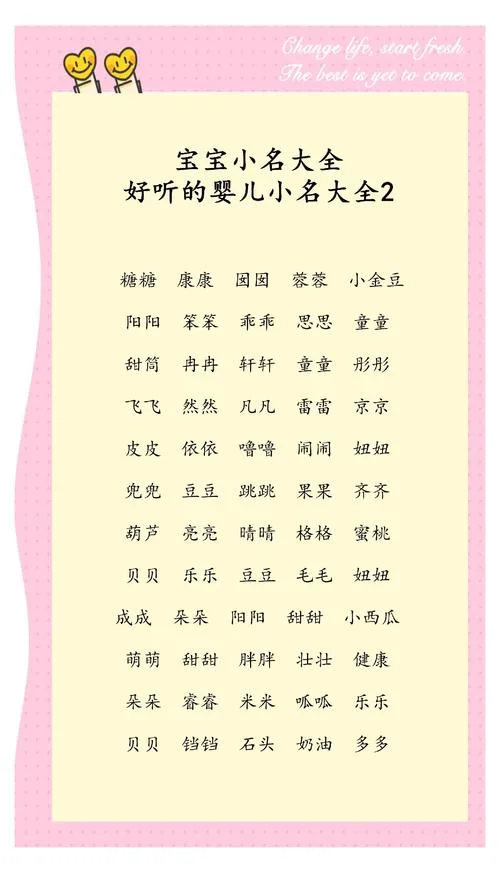 Change life, start fresh.
The best is yet to come.
宝宝小名大全
好听的婴儿小名大全2
糖糖 康康 囡囡 蓉蓉 小金豆
阳阳 笨笨 乖乖 思思 童童
甜筒 冉冉 轩轩 童童 彤彤
飞飞 然然 凡凡 雷雷 京京
皮皮 依依 噜噜 闹闹 妞妞
兜兜 豆豆 跳跳 果果 齐齐
葫芦 亮亮 晴晴 格格 蜜桃
贝贝 乐乐 豆豆 毛毛 妞妞
成成 朵朵 阳阳 甜甜 小西瓜
萌萌 甜甜 胖胖 壮壮 健康
朵朵 睿睿 米米 呱呱 乐乐
贝贝 铛铛 石头 奶油 多多